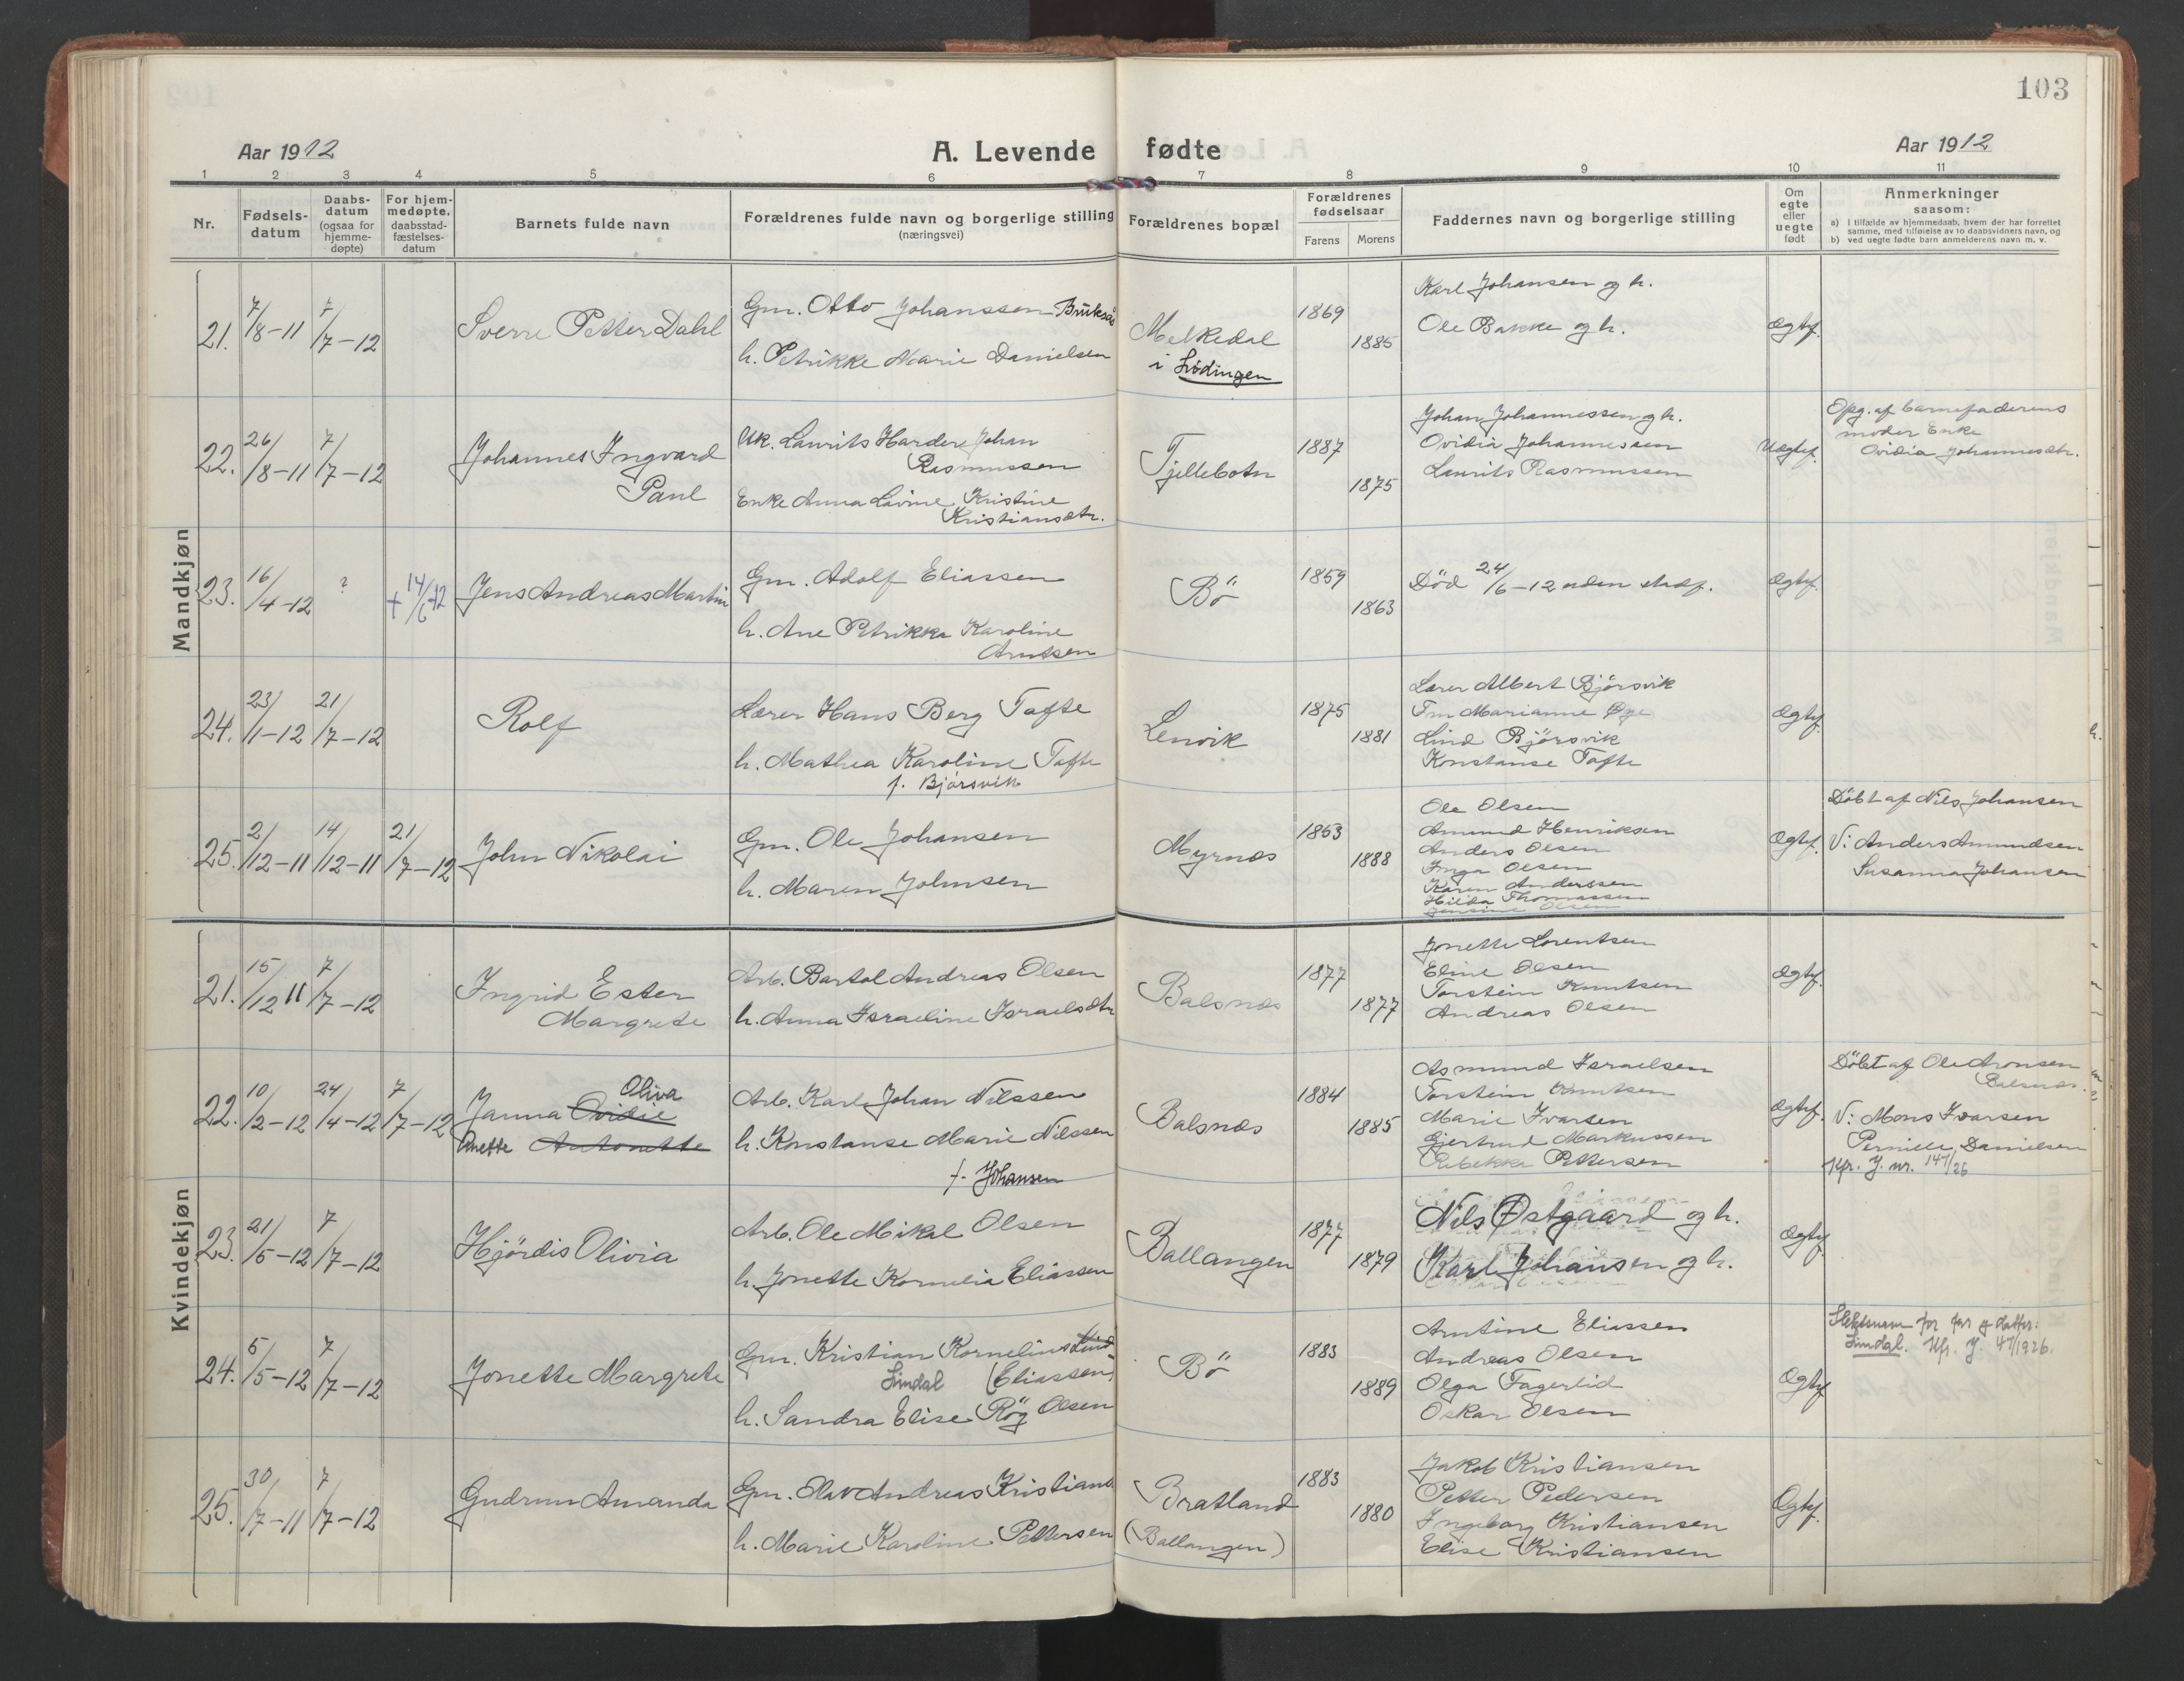 103
Aar 1912 A. Levende fødte Aar 1912
1 2 3 4 5 6 7 8 9 10 11
Nr. Fødsels-datum Daabs-datum (ogsaa for hjemme-døpte) For hjem-medøpte, daabsstad-fæstelses-datum Barnets fulde navn Forældrenes fulde navn og borgerlige stilling (næringsvei) Forældrenes bopæl Forældrenes fødselsaar Farens Morens Faddernes navn og borgerlige stilling Om egte eller uegte født Anmerkninger saasom: a) i tilfælde av hjemmedaab, hvem der har forrettet samme, med tilføielse av to daabsvidners navn, og b) ved uegte fødte barn anmelderens navn m. v.
Mandkjøn
21. 7/8-11 7/7-12 Sverre Petter Dahl
Gm. Otto Johanssen
h. Petrikke Marie Danielsen
Melkedal
i Lødingen
1869 1885
Karl Johansen og h.
Ole Bakke og h.
Ægtef.
22. 26/8-11 7/7-12 Johannes Ingvard
Paul
Uk. Laurits Harder Johan
Rasmussen
Enke Anna Lovine Kristine
Kristiansdtr.
Tjellebotn
1887 1875
Johan Johannessen og h.
Ovidia Johannessen
Laurits Rasmussen
Uægtef.
Opg. af barnefaderens
moder Enke
Ovidia Johannesdtr.
23. 16/4-12 ? + 14/6-12 Jens Andreas Martin
Gm. Adolf Eliassen
h. Ane Petrikka Karoline
Arntsen
Bö
1859 1863
Död 24/6-12 uden stadf.
Ægtef.
24. 23/1-12 21/7-12 Rolf
Lærer Hans Berg Tofte
h. Mathea Karoline Tofte
f. Bjørsvik
Lenvik
1875 1881
Lærer Albert Bjørsvik
Marianne Øye
Lind Bjørsvik
Konstanse Tofte
Ægtef.
25. 2/12-11 14/12-11 21/7-12 John Nikolai
Gm. Ole Johansen
h. Maren Johnsen
Myrnæs
1863 1888
Ole Olsen
Amund Henriksen
Anders Olsen
Inga Olsen
Karen Anderssen
Hilda Thomassen
Jensine Olsen
Ægtef.
Döbt af Nils Johansen
V: Anders Amundsen
Susanna Johansen
Kvindekjøn
21. 15/12 11 7/7-12 Ingrid Ester
Margrete
Arb. Bartol Andreas Olsen
h. Anna Israeline Israelsdtr
Balsnæs
1877 1877
Jonette Lorentsen
Eline Olsen
Torstein Knutsen
Andreas Olsen
Ægtef.
22. 10/2-12 24/4-12 7/7-12 Janna Ovidie Oliva
Anette Antonette
Arb. Karl Johan Nilssen
h. Konstanse Marie Nilssen
f. Johansen
Balsnæs
1884 1885
Asmund Israelsen
Torstein Knutsen
Marie Ivarsen
Gjertrud Markussen
Rebekka Pettersen
Ægtef.
Döbt af Ole Aronsen
Balsnæs.
V: Mons Ivarsen
Pernille Danielsen
Kfr. J. nr. 147/26
23. 21/5-12 7/7-12 Hjördis Olivia
Arb. Ole Mikal Olsen
h. Jonette Kornelia Eliassen
Ballangen
1877 1879
Nils Østgaard og h.
Karl Johansen og h.
Ægtef
24. 6/5-12 7/7-12 Jonette Margrete
Gm. Kristian Kornelius Lind
Lindal (Eliassen)
h. Sandra Elise Röy Olsen
Bö
1883 1889
Arntine Eliassen
Andreas Olsen
Olga Fagerlid
Oskar Olsen
Ægtef
Slektsnavn for far og datter:
Lindal. Kfr. J. 47/1926.
25. 30/7-11 7/7-12 Gudrun Amanda
Gm. Olav Andreas Kristians
h. Marie Karoline Pettersen
Bratland
(Ballangen)
1883 1880
Jakob Kristiansen
Petter Pedersen
Ingeborg Kristiansen
Elise Kristiansen
Ægtef.